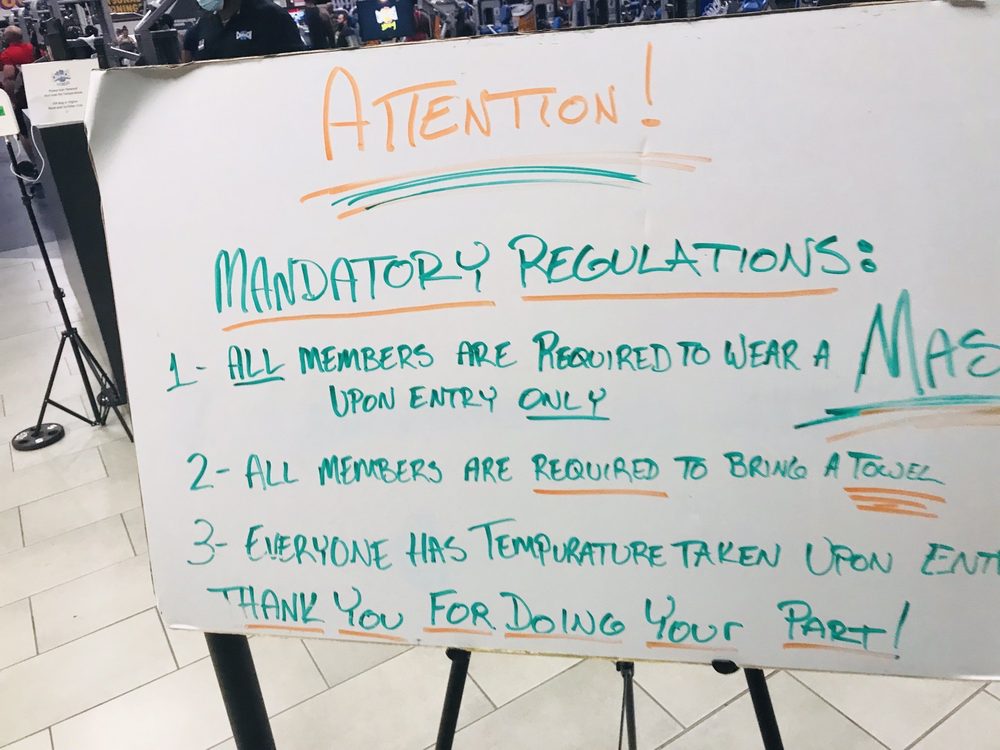 ATTENTION!
MANDATORY REGULATIONS:
1- ALL MEMBERS ARE REQUIRED TO WEAR A MAS
UPON ENTRY ONLY
2- ALL MEMBERS ARE REQUIRED TO BRING A TOWEL
3- EVERYONE HAS TEMPURATURE TAKEN UPON ENT
THANK YOU FOR DOING YOUR PART!